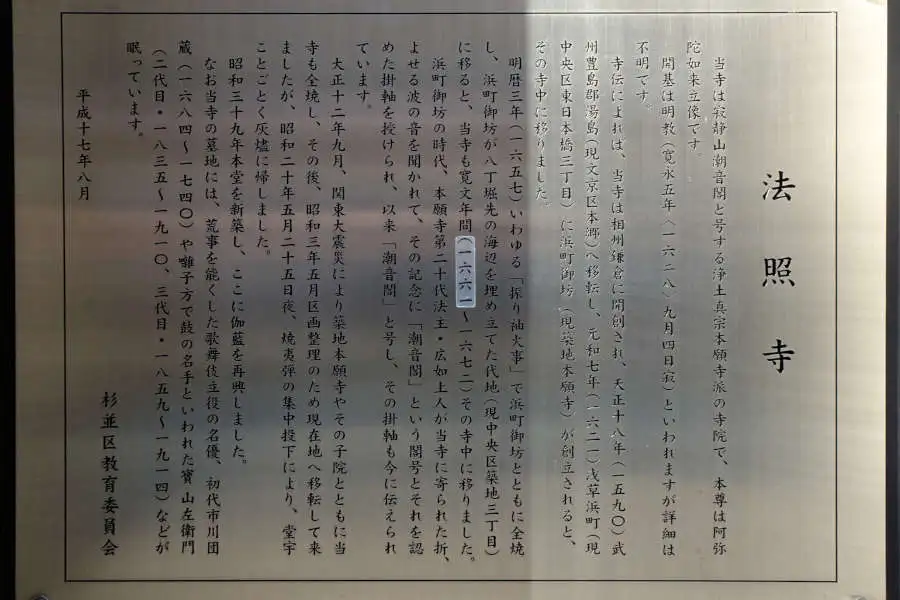 法照寺
当寺は寂静山潮音閣と号する浄土真宗本願寺派の寺院で、本尊は阿弥
陀如来立像です。
開基は明教（寛永五年（一六二八）九月四日寂）といわれますが詳細は
不明です。
寺伝によれば、当寺は相州鎌倉に開創され、天正十八年（一五九〇）武
州豊島郡湯島（現文京区本郷）へ移転し、元和七年（一六二一）浅草浜町（現
中央区東日本橋三丁目）に浜町御坊（現築地本願寺）が創立されると、
その寺中に移りました。
明暦三年（一六五七）いわゆる「振り袖火事」で浜町御坊とともに全焼
し、浜町御坊が八丁堀先の海辺を埋め立てた代地（現中央区築地三丁目）
に移ると、当寺も寛文年間（一六六一～一六七二）その寺中に移りました。
浜町御坊の時代、本願寺第二十代法主・広如上人が当寺に寄られた折、
よせる波の音を聞かれて、その記念に「潮音閣」という閣号とそれを認
めた掛軸を授けられ、以来「潮音閣」と号し、その掛軸も今に伝えられ
ています。
大正十二年九月、関東大震災により築地本願寺やその子院とともに当
寺も全焼し、その後、昭和三年五月区画整理のため現在地へ移転して来
ましたが、昭和二十年五月二十五日夜、焼夷弾の集中投下により、堂宇
ことごとく灰燼に帰しました。
昭和三十九年本堂を新築し、ここに伽藍を再興しました。
なお当寺の墓地には、荒事を能くした歌舞伎立役の名優、初代市川団
蔵（一六八四～一七四〇）や囃子方で鼓の名手といわれた寶山左衛門
（二代目・一八三五～一九一〇、三代目・一八五九～一九一四）などが
眠っています。
平成十七年八月
杉並区教育委員会